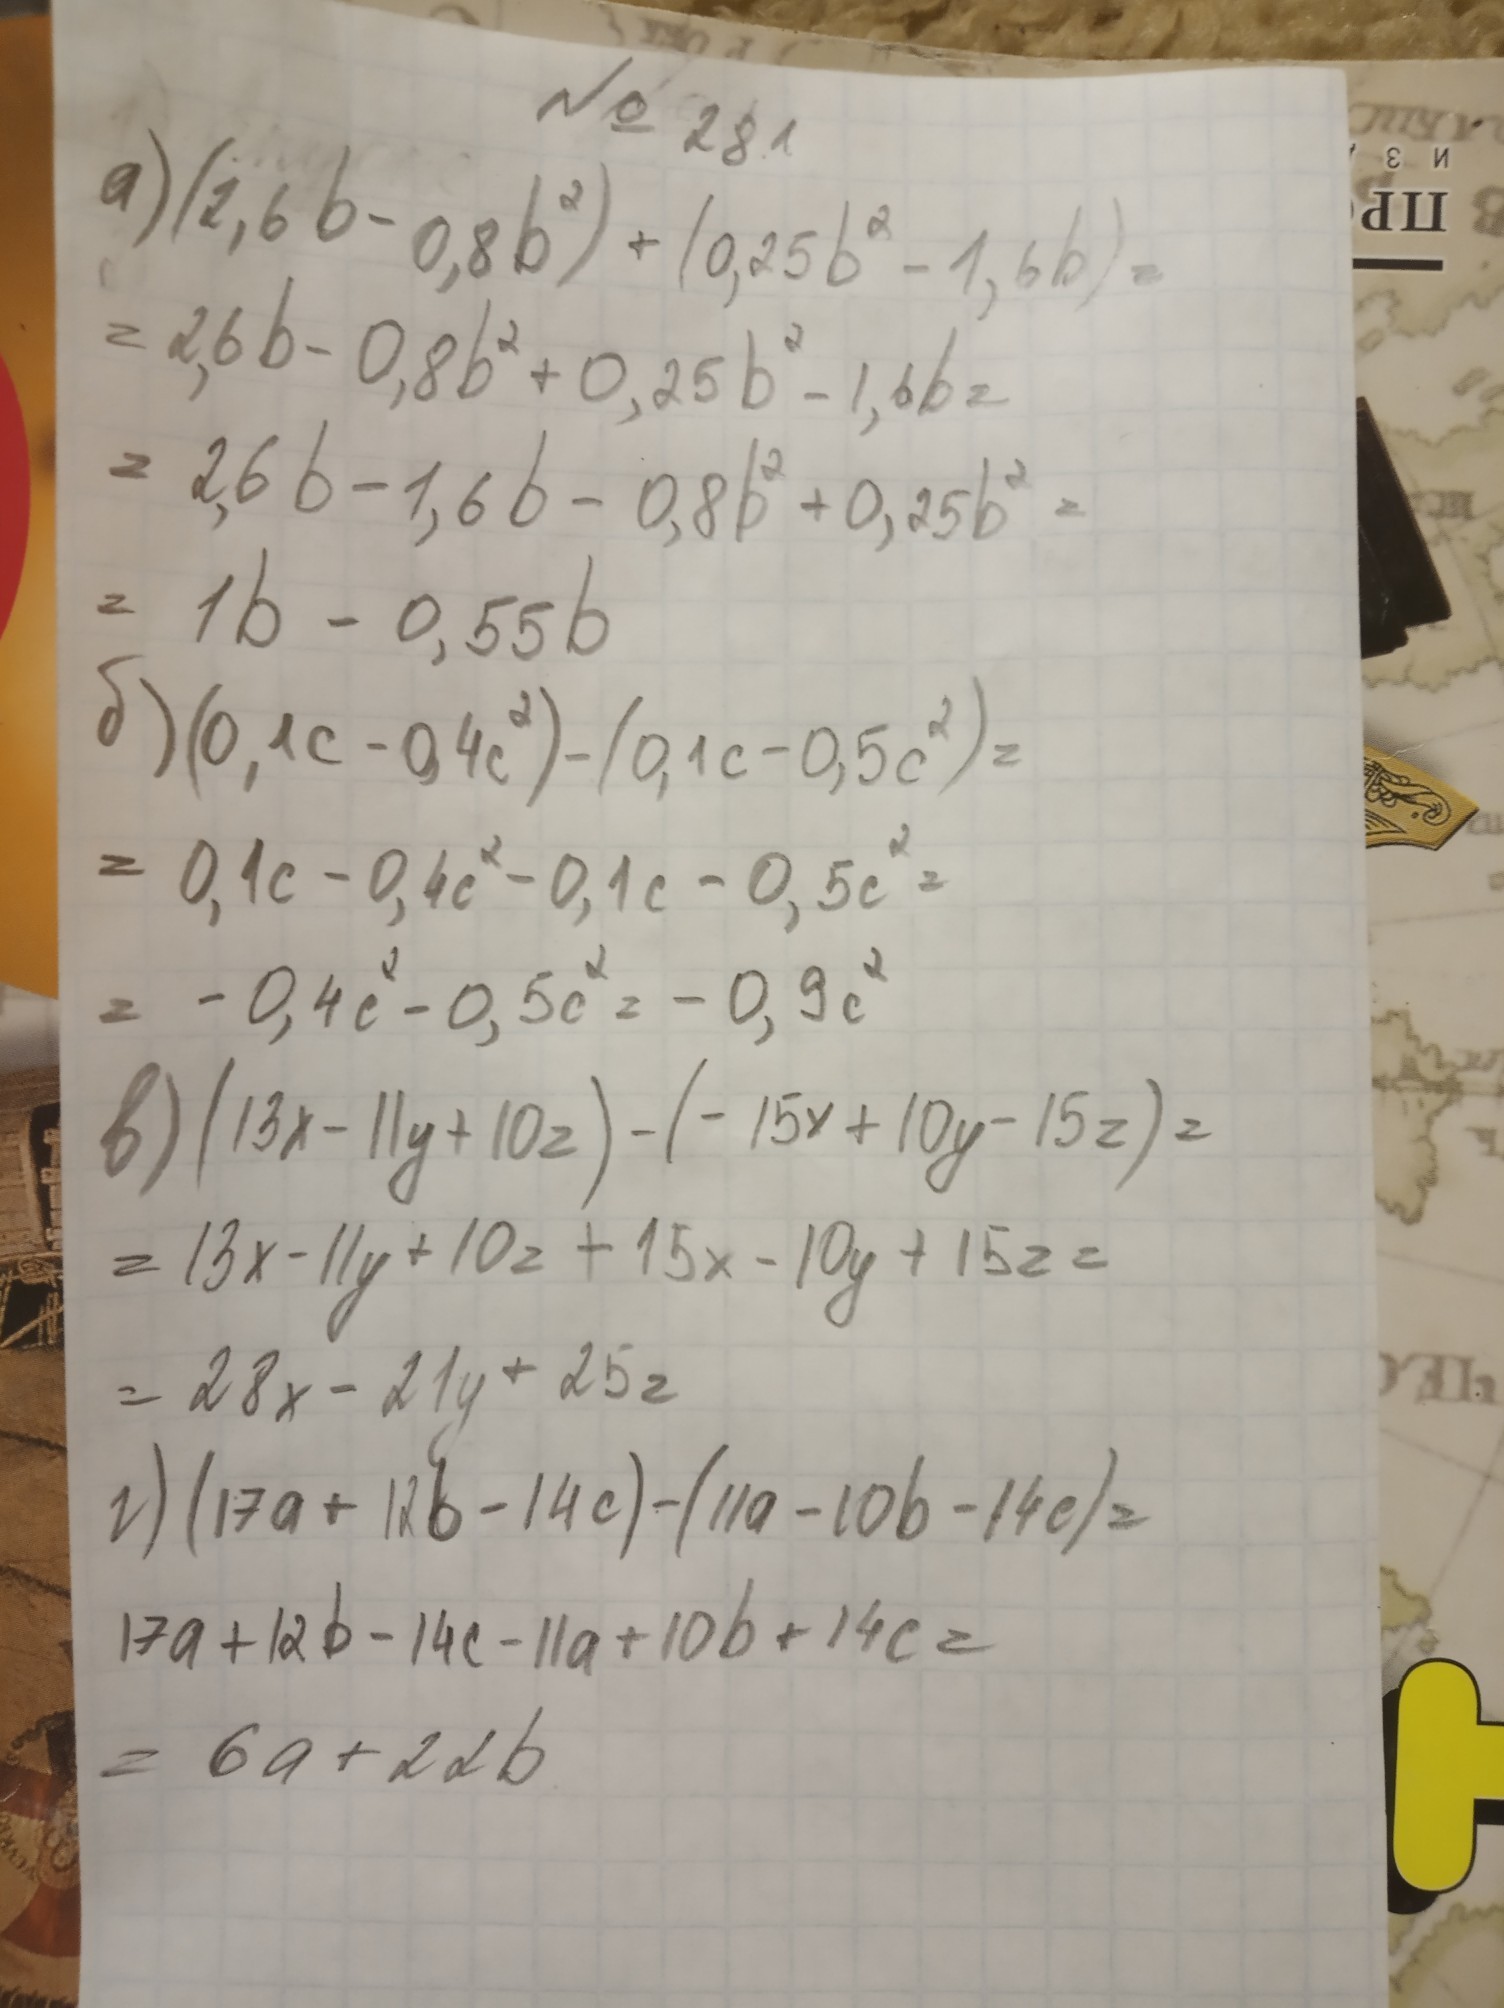 № 281
а) (2,6b - 0,8b²) + (0,25b² - 1,6b) =
= 2,6b - 0,8b² + 0,25b² - 1,6b =
= 2,6b - 1,6b - 0,8b² + 0,25b² =
= 1b - 0,55b
б) (0,1c - 0,4c²) - (0,1c - 0,5c²) =
= 0,1c - 0,4c² - 0,1c - 0,5c² =
= - 0,4c² - 0,5c² = - 0,9c²
в) (13x - 11y + 10z) - (- 15x + 10y - 15z) =
= 13x - 11y + 10z + 15x - 10y + 15z =
= 28x - 21y + 25z
г) (17a + 12b - 14c) - (11a - 10b - 14c) =
17a + 12b - 14c - 11a + 10b + 14c =
= 6a + 22b